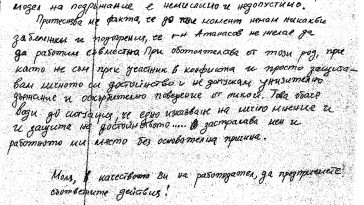 модел на подражание е немислимо и недопустимо.
Притеснява ме факта, че до този момент нямам никакви
забележки и подозрения, че г-н Атанасов не желае да
да работим съвместно. При обстоятелства от този род, при
като не съм пряк участник в конфликта и просто защита-
вам името си, достойнство и не допускам унизително
държание и оскърбително поведение от никого. Това обаче
води до ситуация, че едно изказване на моето мнение и
и защита на достойнството..... застрашава мен и
работното ми място без основателна причина.
Моля, в качеството Ви на работодател, да предприемете
съответните действия!